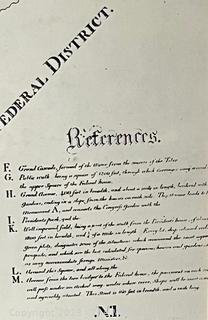 FEDERAL DISTRICT.
References.
F. Grand Cascade, formed of the Water from the sources of the Tiber
G. Public walk, being a square of 1200 feet, through which Carriages may ascend to
the upper Square of the Federal house.
H. Grand Avenue, 400 feet in breadth, and about a mile in length, bordered with
Gardens, ending in a slope from the houses on each side. This Avenue leads to the
Monument A, and connects the Congress Garden with the
I. Presidents park, and the
K. Well improved field, being a part of the walk from the Presidents house, of about
feet in breadth, and of a mile in length. Every lot, deep colored
green plots, designates some of the situations which command the most agreeable
prospects, and which are the best calculated for spacious houses and gardens, such
as may accommodate foreign Ministers, &c.
L. Around this Square, and all along the
M. Avenue from the two bridges to the Federal house, the pavement on each side
will pass under an Arched way, under whose cover, Shops will be most
and agreeably situated. This Street is 160 feet in breadth, and a mile long.